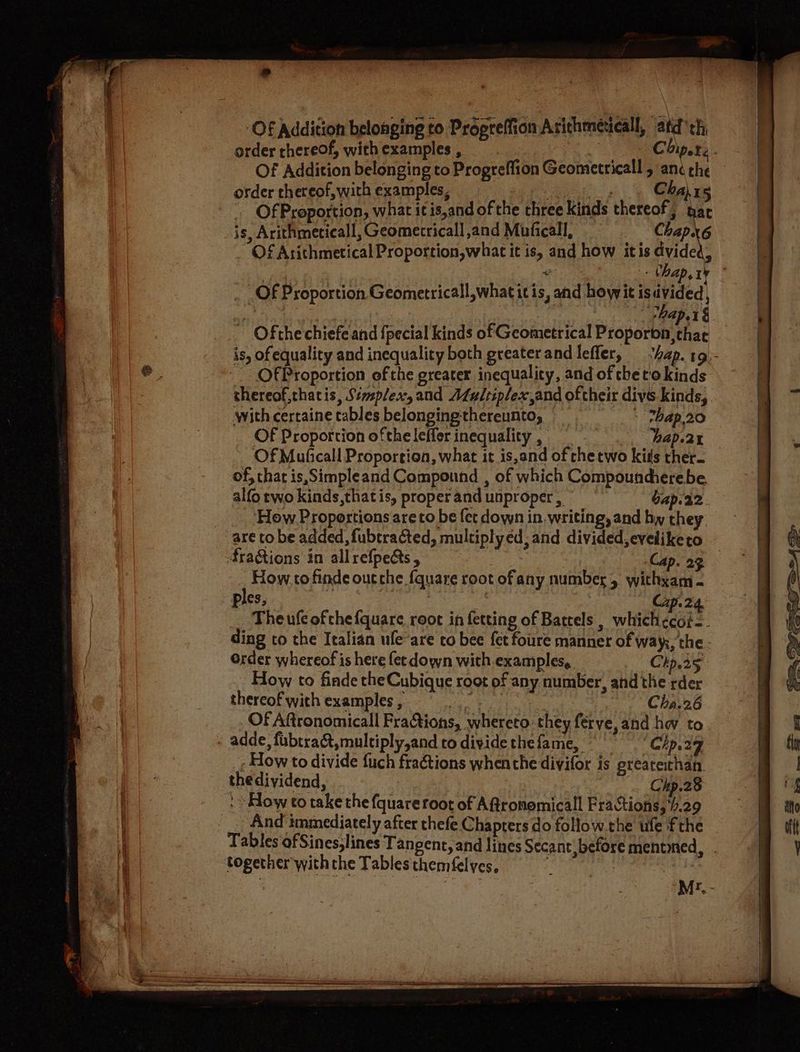 Of Addition belonging to Progreſſion Arithmeticall, atd th
order thereof, with examples, Chip.14
Of Addition belonging to Progreſſion Geometricall, anc the
order thereof, with examples, Chap.15
Of Proportion, what it is, and of the three kinds thereof, nat
is, Arithmeticall, Geometricall, and Muſicall, Chap.16
Of Arithmetical Proportion, what it is, and how it is dvided,
Chap.17
Of Proportion Geometricall, what it is, and how it is divided,
Chap.18
Of the chiefe and ſpecial kinds of Geometrical Proporon, that
is, of equality and inequality both greater and leſſer, hap. 19.
Of Proportion of the greater inequality, and of the to kinds
thereof, that is, Simplex, and Multiplex, and of their divs kinds,
with certaine tables belonging thereunto, hap.20
Of Proportion of the leſſer inequality, hap.21
Of Muſicall Proportion, what it is, and of the two kids ther-
of, that is, Simple and Compound, of which Compound here be
alſo two kinds, that is, proper and unproper, Cap.22
How Proportions are to be ſet down in writing, and hw they
are to be added, ſubtracted, multiplyed, and divided, evelike to
fractions in all reſpects, Cap. 23
How to finde out the ſquare root of any number, with xam-
ples, Cap.24
The uſe of the ſquare root in ſetting of Battels, which ccor-
ding to the Italian uſe are to bee ſet foure manner of ways, the
order whereof is here ſet down with examples, Chp.25
How to finde the Cubique root of any number, and the rder
thereof with examples, Cha.26
Of Aſtronomicall Fractions, whereto they ſerve, and how to
adde, ſubtract, multiply, and to divide the ſame, Chp.27
How to divide ſuch fractions when the diviſor is greater than
the dividend, Chp.28
How to take the ſquare root of Aſtronomicall Fractions, h.29
And immediately after theſe Chapters do follow the uſe f the
Tables of Sines, lines Tangent, and lines Secant, before mentined,
together with the Tables themſelves.
Mr.